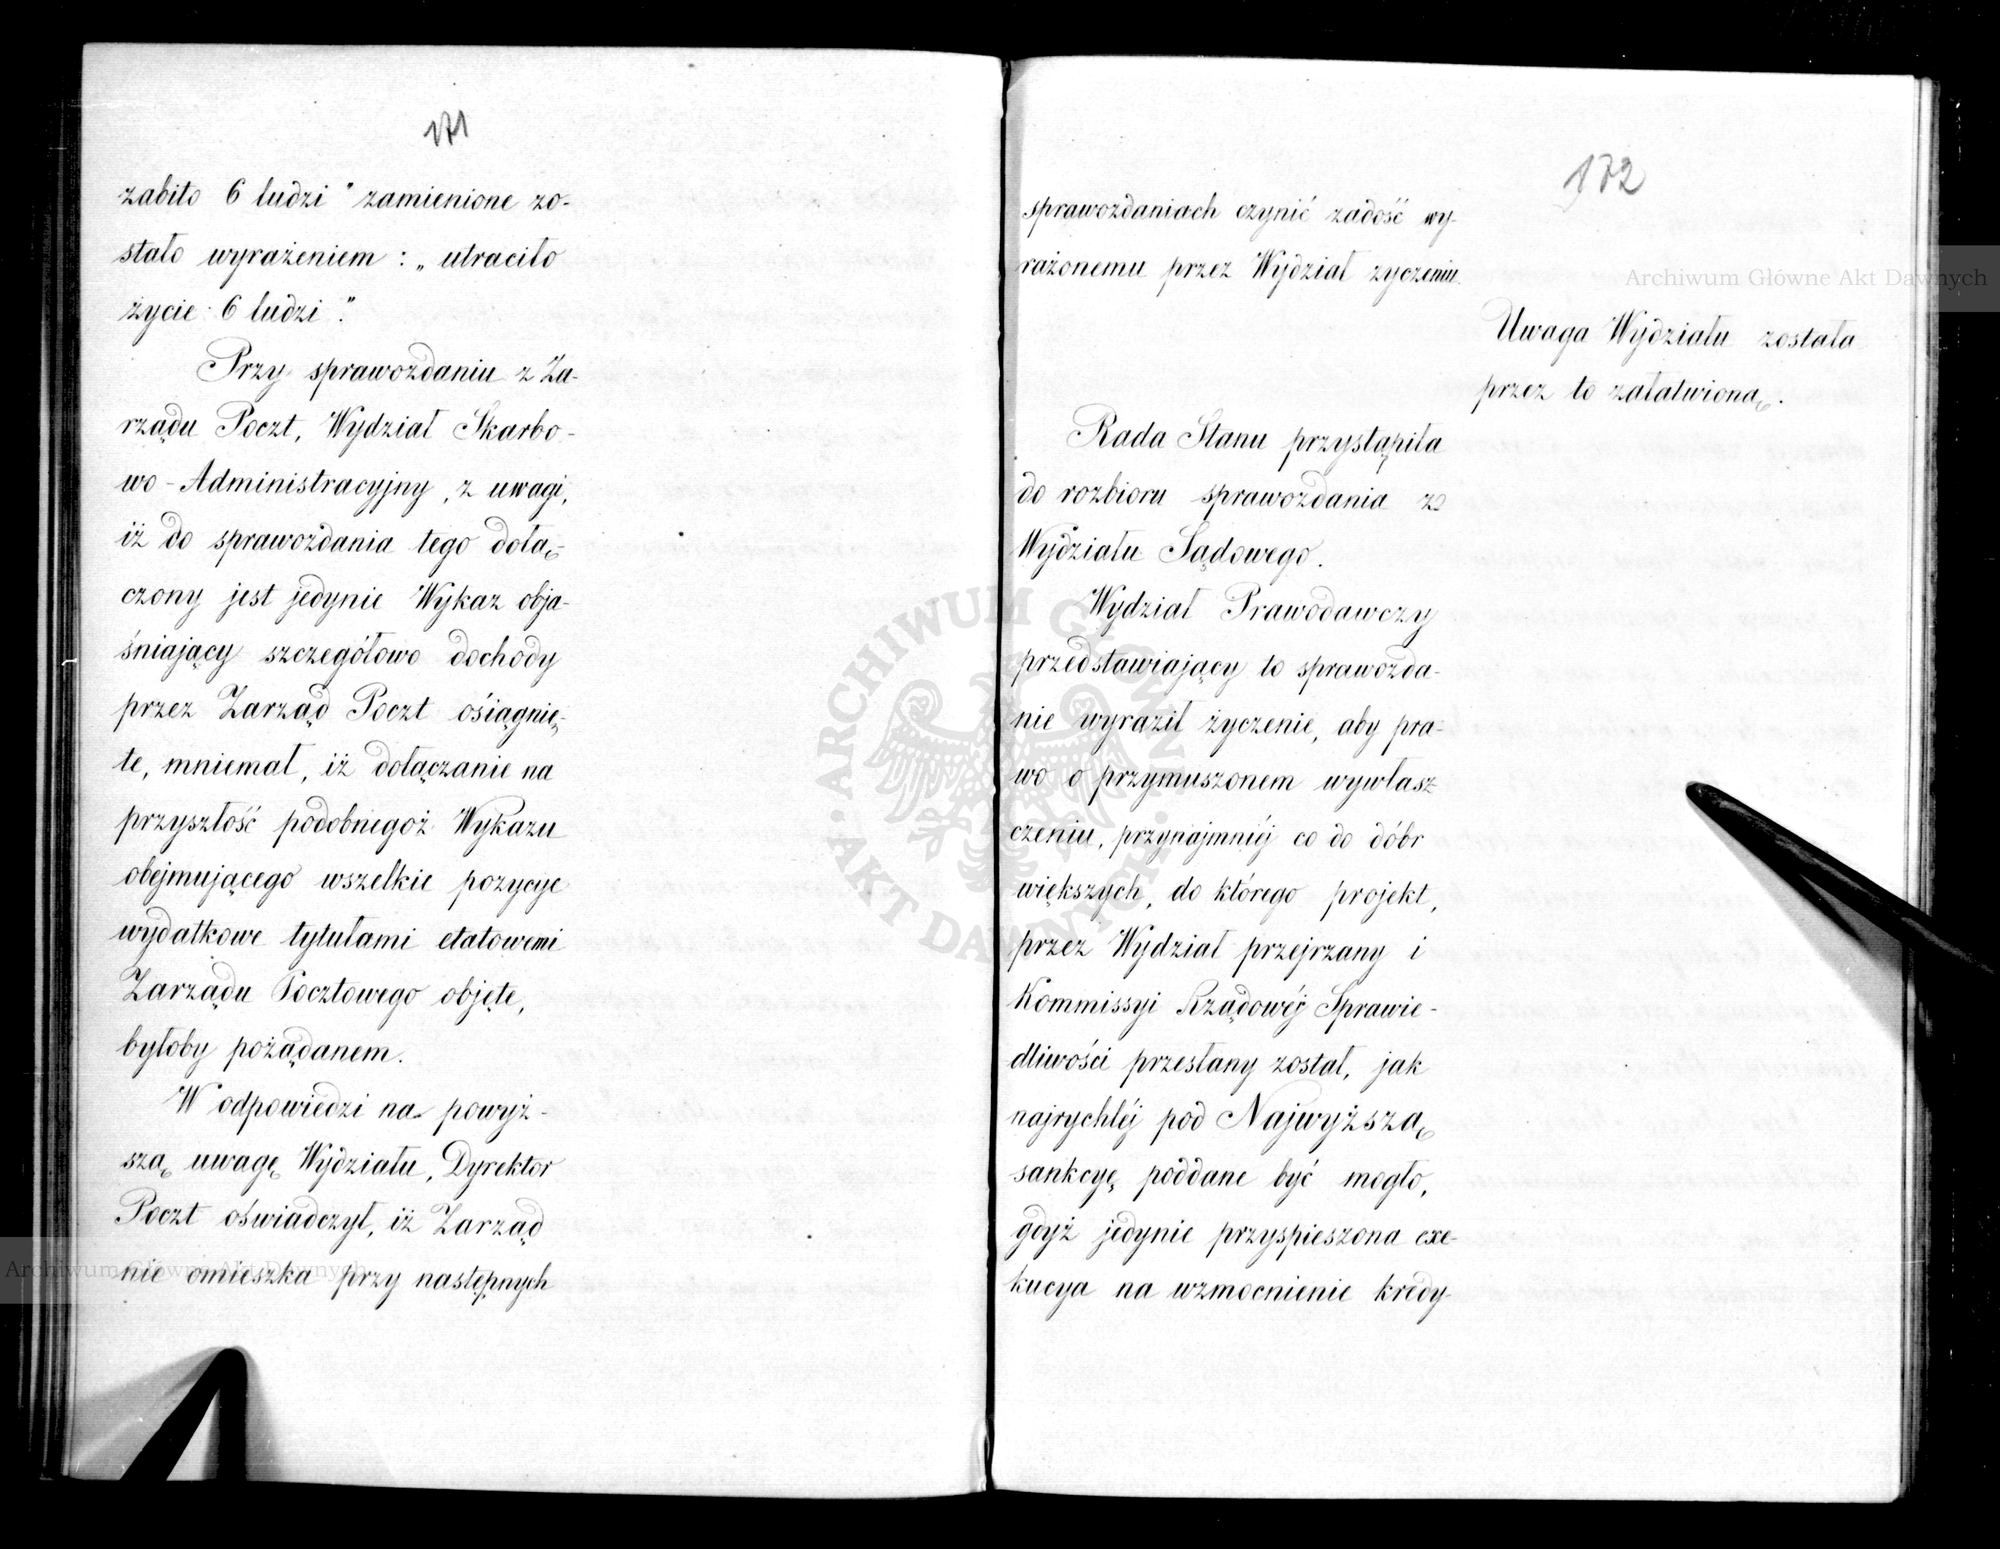 171
zabito 6 ludzi" zamienione zo-
stało wyrażeniem: „utraciło
życie 6 ludzi".
Przy sprawozdaniu z Za-
rządu Poczt, Wydział Skarbo-
wo-Administracyjny, z uwagi,
iż do sprawozdania tego dołą-
czony jest jedynie Wykaz obja-
śniający szczegółowo dochody
przez Zarząd Poczt osiągnię-
te, mniemał, iż dołączanie na
przyszłość podobnegoż Wykazu
obejmującego wszelkie pozycye
wydatkowe tytułami etatowemi
Zarządu Pocztowego objęte,
byłoby pożądanem.
W odpowiedzi na powyż-
szą uwagę Wydziału, Dyrektor
Poczt oświadczył, iż Zarząd
nie omieszka przy następnych
172
sprawozdaniach czynić zadość wy-
rażonemu przez Wydział życzeniu.
Uwaga Wydziału została
przez to załatwioną.
Rada Stanu przystąpiła
do rozbioru sprawozdania z
Wydziału Sądowego.
Wydział Prawodawczy
przedstawiający to sprawozda-
nie wyraził życzenie, aby pra-
wo o przymuszonem wywłasz-
czeniu, przynajmniéj co do dóbr
większych, do którego projekt,
przez Wydział przejrzany i
Kommissyi Rządowéj Sprawie-
dliwości przesłany został, jak
najrychléj pod Najwyższą
sankcyę poddane być mogło,
gdyż jedynie przyspieszona exe-
kucya na wzmocnienie kredy-
Archiwum Główne Akt Dawnych
Archiwum Główne Akt Dawnych
ARCHIWUM GŁÓWNE · AKT DAWNYCH ·